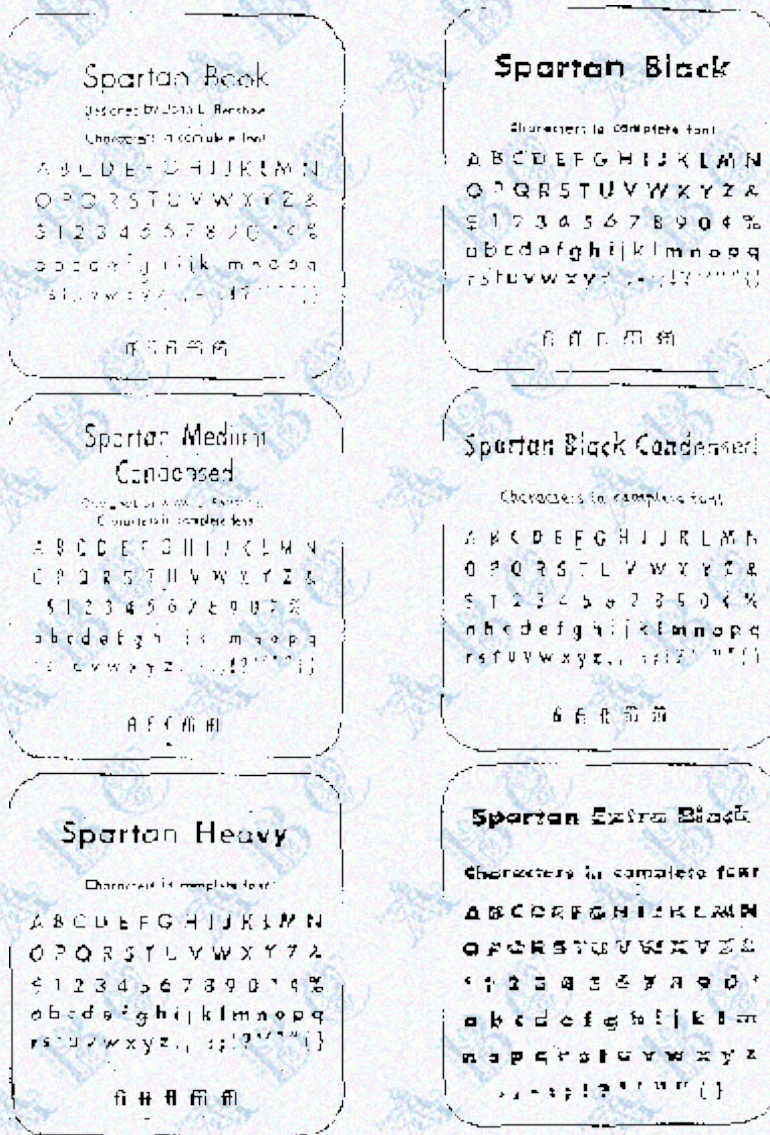 Spartan Book
Designed by John L. Renshaw
Characters in complete font
A B C D E F G H I J K L M N
O P Q R S T U V W X Y Z &
$ 1 2 3 4 5 6 7 8 9 0 ¢ %
a b c d e f g h i j k l m n o p q
r s t u v w x y z . , - : ; ! ?
Spartan Black
Characters in complete font
A B C D E F G H I J K L M N
O P Q R S T U V W X Y Z &
$ 1 2 3 4 5 6 7 8 9 0 ¢ %
a b c d e f g h i j k l m n o p q
r s t u v w x y z . , - : ; ! ? ' ' " " ( )
Spartan Medium
Condensed
Characters in complete font
A B C D E F G H I J K L M N
O P Q R S T U V W X Y Z &
$ 1 2 3 4 5 6 7 8 9 0 ¢ %
a b c d e f g h i j k l m n o p q
r s t u v w x y z . , - : ; ! ? ' ' " " ( )
Spartan Black Condensed
Characters in complete font
A B C D E F G H I J K L M N
O P Q R S T U V W X Y Z &
$ 1 2 3 4 5 6 7 8 9 0 ¢ %
a b c d e f g h i j k l m n o p q
r s t u v w x y z . , - : ; ! ? ' ' " " ( )
Spartan Heavy
Characters in complete font
A B C D E F G H I J K L M N
O P Q R S T U V W X Y Z &
$ 1 2 3 4 5 6 7 8 9 0 ¢ %
a b c d e f g h i j k l m n o p q
r s t u v w x y z . , - : ; ! ? ' ' " " ( )
fi fl ff ffi ffl
Spartan Extra Black
Characters in complete font
A B C D E F G H I J K L M N
O P Q R S T U V W X Y Z &
$ 1 2 3 4 5 6 7 8 9 0 ¢
a b c d e f g h i j k l m
n o p q r s t u v w x y z
. , - : ; ! ? ' ' " " ( )